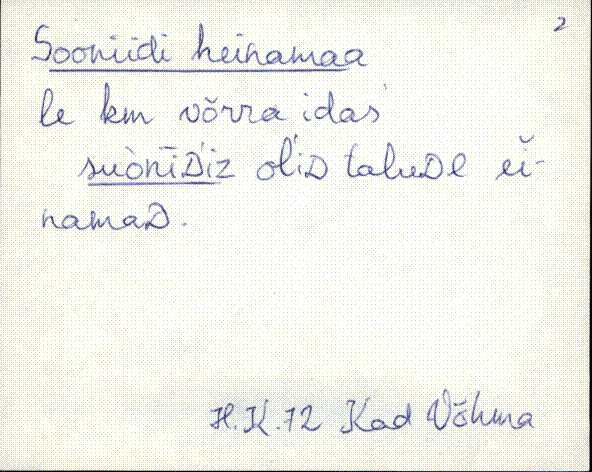 2
Sooniidi heinamaa
le km võrra idas
suònīᴅ́iz ol'iᴅ taluᴅe ei-
namaᴅ.
H.K. 72 Kad Võhma